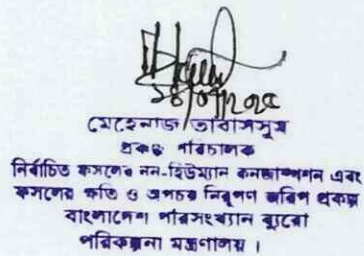 মেহেনাজ তাবাসসুম
প্রকল্প পরিচালক
নির্বাচিত ফসলের নন-হিউম্যান কনজাম্পশন এবং
ফসলের ক্ষতি ও অপচয় নিরূপণ জরিপ প্রকল্প
বাংলাদেশ পরিসংখ্যান ব্যুরো
পরিকল্পনা মন্ত্রণালয় ।